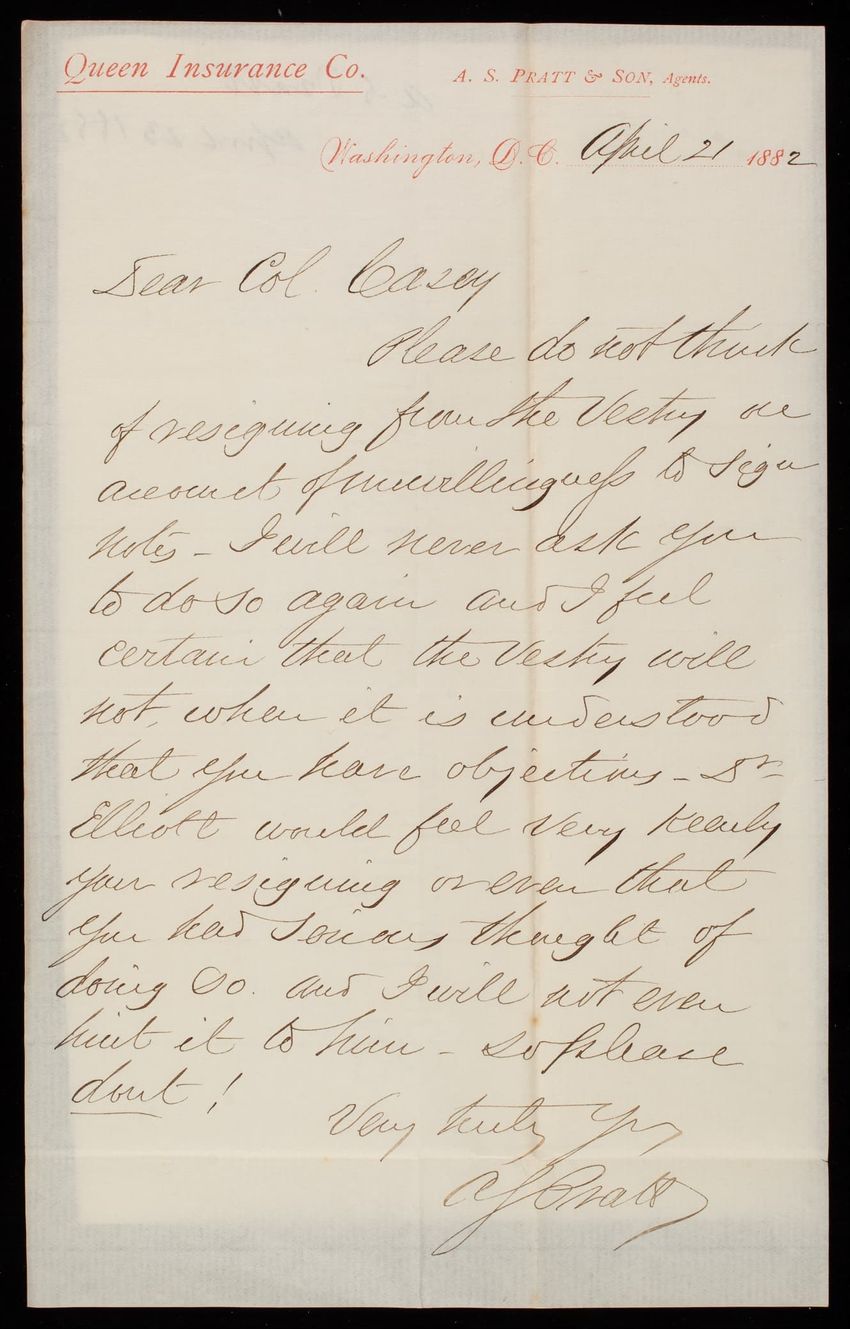 Queen Insurance Co.
A. S. PRATT & SON, Agents.
Washington, D. C. April 21 1882
Dear Col. Casey
Please do not think
of resigning from the Vestry on
account of unwillingness to sign
notes - I will never ask you
to do so again and I feel
certain that the Vestry will
not, when it is understood
that you have objections - Dr
Elliott would feel very keenly
your resigning or even that
you had serious thought of
doing so. and I will not even
hint it to him - so please
dont !
Very truly Yr
A S Pratt